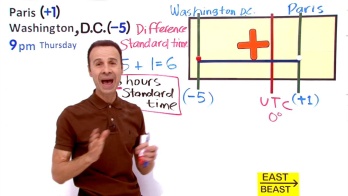 Paris (+1)
Washington, D.C. (-5)
9 pm Thursday
Difference
Standard time
5 + 1 = 6
hours
Standard
time
Washington D.C.
Paris
+
(-5)
UTC
0°
(+1)
EAST
BEAST